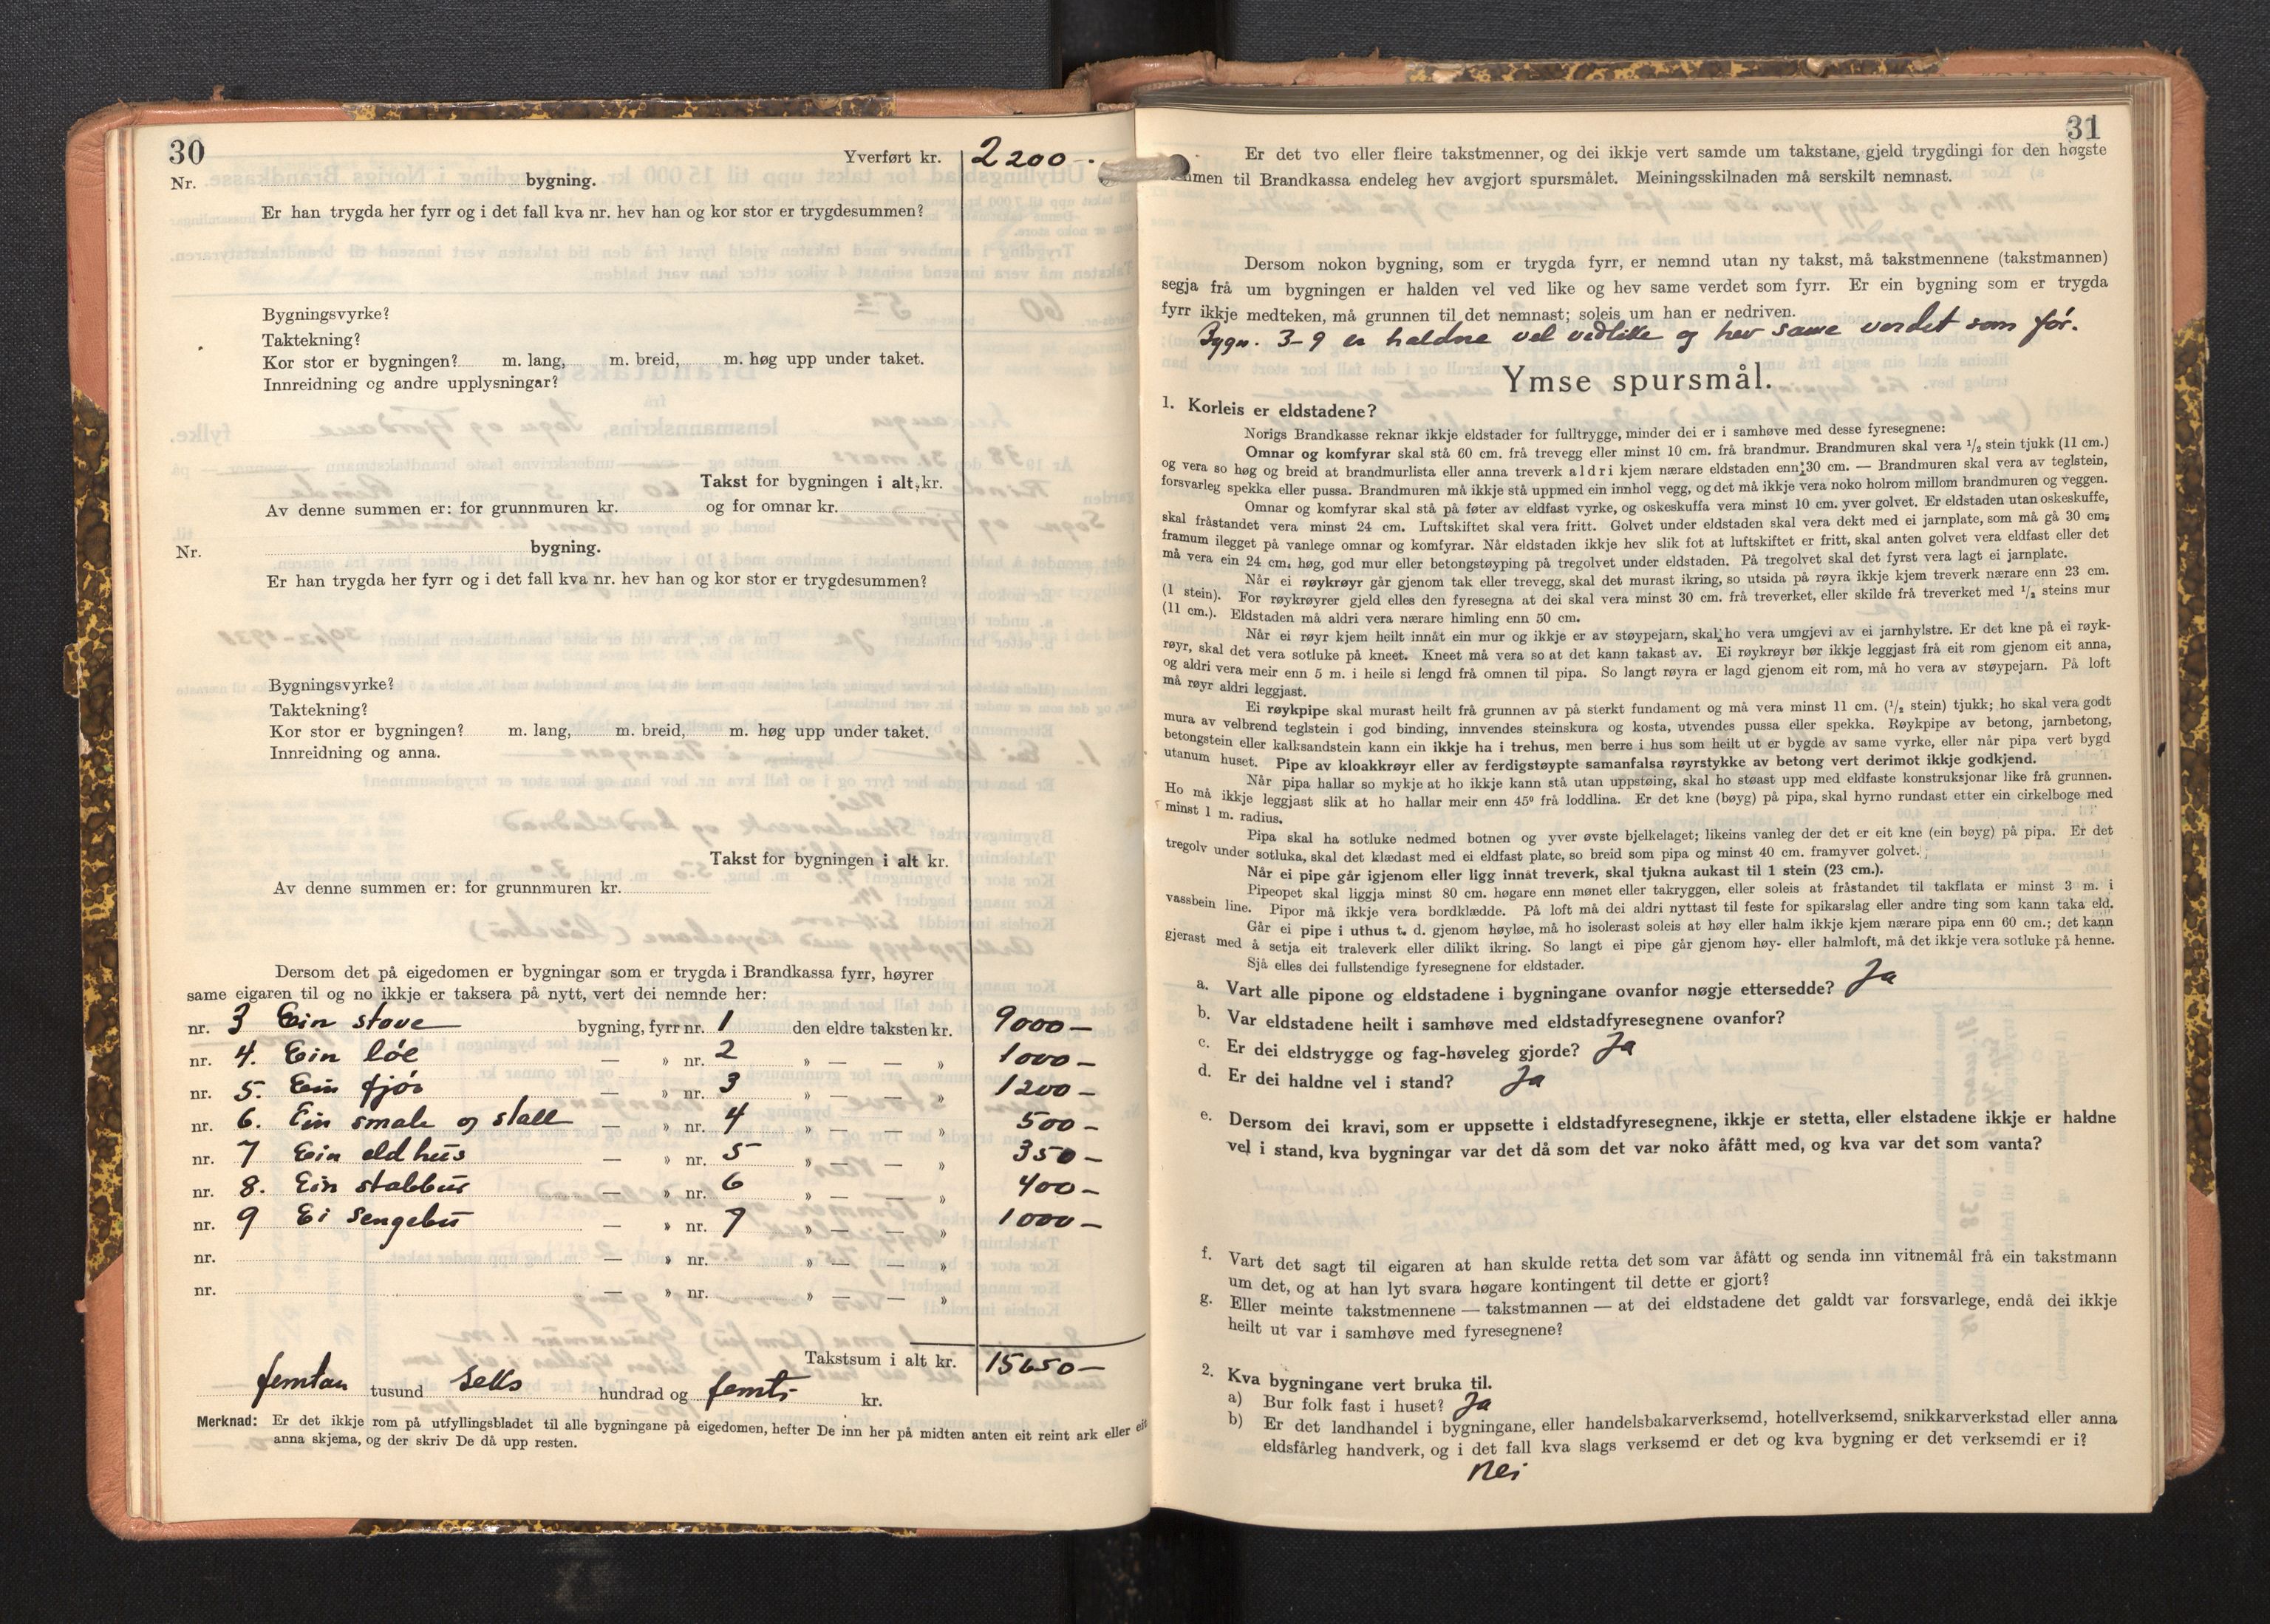 30
Yverført kr. 2200-.
Nr. bygning.
Er han trygda her fyrr og i det fall kva nr. hev han og kor stor er trygdesummen?
Bygningsvyrke?
Taktekning?
Kor stor er bygningen? m. lang, m. breid, m. høg upp under taket.
Innreidning og andre upplysningar?
Takst for bygningen i alt, kr.
Av denne summen er: for grunnmuren kr. og for omnar kr.
Nr. bygning.
Er han trygda her fyrr og i det fall kva nr. hev han og kor stor er trygdesummen?
Bygningsvyrke?
Taktekning?
Kor stor er bygningen? m. lang, m. breid, m. høg upp under taket.
Innreidning og anna.
Takst for bygningen i alt kr.
Av denne summen er: for grunnmuren kr.
Dersom det på eigedomen er bygningar som er trygda i Brandkassa fyrr, høyrer
same eigaren til og no ikkje er taksera på nytt, vert dei nemnde her:
nr. 3 Ein stove bygning, fyrr nr. 1 den eldre taksten kr. 9000-
nr. 4. Ein löe — » nr. 2 » — — » 1000-
nr. 5. Ein fjös — » nr. 3 » — — » 1200-
nr. 6. Ein smale og stall — » nr. 4 » — — » 500-
nr. 7 Ein eldhus — » nr. 5 » — — » 350-
nr. 8. Ein stabbur — » nr. 6 » — — » 400-
nr. 9 Ei sengebu — » nr. 7 » — — » 1000-
nr. — » nr. » — — »
nr. — » nr. » — — »
Takstsum i alt kr. 15650-
femtan tusund seks hundrad og femti kr.
Merknad: Er det ikkje rom på utfyllingsbladet til alle bygningane på eigedomen, hefter De inn her på midten anten eit reint ark eller eit
anna skjema, og der skriv De då upp resten.
31
Er det tvo eller fleire takstmenner, og dei ikkje vert samde um takstane, gjeld trygdingi for den høgste
men til Brandkassa endeleg hev avgjort spursmålet. Meiningsskilnaden må serskilt nemnast.
Dersom nokon bygning, som er trygda fyrr, er nemnd utan ny takst, må takstmennene (takstmannen)
segja frå um bygningen er halden vel ved like og hev same verdet som fyrr. Er ein bygning som er trygda
fyrr ikkje medteken, må grunnen til det nemnast; soleis um han er nedriven.
Bygn. 3-9 er haldne vel vedlike og hev same verdet som før.
Ymse spursmål.
1. Korleis er eldstadene?
Norigs Brandkasse reknar ikkje eldstader for fulltrygge, minder dei er i samhøve med desse fyresegnene:
Omnar og komfyrar skal stå 60 cm. frå trevegg eller minst 10 cm. frå brandmur. Brandmuren skal vera 1/2 stein tjukk (11 cm.)
og vera so høg og breid at brandmurlista eller anna treverk aldri kjem nærare eldstaden enn 30 cm. — Brandmuren skal vera av teglstein,
forsvarleg spekka eller pussa. Brandmuren må ikkje stå uppmed ein innhol vegg, og det må ikkje vera noko holrom millom brandmuren og veggen.
Omnar og komfyrar skal stå på føter av eldfast vyrke, og oskeskuffa vera minst 10 cm. yver golvet. Er eldstaden utan oskeskuffe,
skal fråstandet vera minst 24 cm. Luftskiftet skal vera fritt. Golvet under eldstaden skal vera dekt med ei jarnplate, som må gå 30 cm.
framum ilegget på vanlege omnar og komfyrar. Når eldstaden ikkje hev slik fot at luftskiftet er fritt, skal anten golvet vera eldfast eller det
må vera ein 24 cm. høg, god mur eller betongstøyping på tregolvet under eldstaden. På tregolvet skal det fyrst vera lagt ei jarnplate.
Når ei røykrøyr går gjenom tak eller trevegg, skal det murast ikring, so utsida på røyra ikkje kjem treverk nærare enn 23 cm.
(1 stein). For røykrøyrer gjeld elles den fyresegna at dei skal vera minst 30 cm. frå treverket, eller skilde frå treverket med 1/2 steins mur
(11 cm.). Eldstaden må aldri vera nærare himling enn 50 cm.
Når ei røyr kjem heilt innåt ein mur og ikkje er av støypejarn, skal ho vera umgjevi av ei jarnhylstre. Er det kne på ei røyk-
røyr, skal det vera sotluke på kneet. Kneet må vera so at det kann takast av. Ei røykrøyr bør ikkje leggjast frå eit rom gjenom eit anna,
og aldri vera meir enn 5 m. i heile si lengd frå omnen til pipa. So langt røyra er lagd gjenom eit rom, må ho vera av støypejarn. På loft
må røyr aldri leggjast.
Ei røykpipe skal murast heilt frå grunnen av på sterkt fundament og må vera minst 11 cm. (1/2 stein) tjukk; ho skal vera godt
mura av velbrend teglstein i god binding, innvendes steinskura og kosta, utvendes pussa eller spekka. Røykpipe av betong, jarnbetong,
betongstein eller kalksandstein kann ein ikkje ha i trehus, men berre i hus som heilt ut er bygde av same vyrke, eller når pipa vert bygd
utanum huset. Pipe av kloakkrøyr eller av ferdigstøypte samanfalsa røyrstykke av betong vert derimot ikkje godkjend.
Når pipa hallar so mykje at ho ikkje kann stå utan uppstøing, skal ho støast upp med eldfaste konstruksjonar like frå grunnen.
Ho må ikkje leggjast slik at ho hallar meir enn 45° frå loddlina. Er det kne (bøyg) på pipa, skal hyrno rundast etter ein cirkelboge med
minst 1 m. radius.
Pipa skal ha sotluke nedmed botnen og yver øvste bjelkelaget; likeins vanleg der det er eit kne (ein bøyg) på pipa. Er det
tregolv under sotluka, skal det klædast med ei eldfast plate, so breid som pipa og minst 40 cm. framyver golvet.
Når ei pipe går igjenom eller ligg innåt treverk, skal tjukna aukast til 1 stein (23 cm.).
Pipeopet skal liggja minst 80 cm. høgare enn mønet eller takryggen, eller soleis at fråstandet til takflata er minst 3 m. i
vassbein line. Pipor må ikkje vera bordklædde. På loft må dei aldri nyttast til feste for spikarslag eller andre ting som kann taka eld.
Går ei pipe i uthus t. d. gjenom høyløe, må ho isolerast soleis at høy eller halm ikkje kjem nærare pipa enn 60 cm.; det kann
gjerast med å setja eit traleverk eller dilikt ikring. So langt ei pipe går gjenom høy- eller halmloft, må det ikkje vera sotluke på henne.
Sjå elles dei fullstendige fyresegnene for eldstader.
a. Vart alle pipone og eldstadene i bygningane ovanfor nøgje ettersedde? Ja
b. Var eldstadene heilt i samhøve med eldstadfyresegnene ovanfor?
c. Er dei eldstrygge og fag-høveleg gjorde? Ja
d. Er dei haldne vel i stand? Ja
e. Dersom dei kravi, som er uppsette i eldstadfyresegnene, ikkje er stetta, eller elstadene ikkje er haldne
vel i stand, kva bygningar var det då som det var noko åfått med, og kva var det som vanta?
f. Vart det sagt til eigaren at han skulde retta det som var åfått og senda inn vitnemål frå ein takstmann
um det, og at han lyt svara høgare kontingent til dette er gjort?
g. Eller meinte takstmennene — takstmannen — at dei eldstadene det galdt var forsvarlege, endå dei ikkje
heilt ut var i samhøve med fyresegnene?
2. Kva bygningane vert bruka til.
a) Bur folk fast i huset? Ja
b) Er det landhandel i bygningane, eller handelsbakarverksemd, hotellverksemd, snikkarverkstad eller anna
eldsfårleg handverk, og i det fall kva slags verksemd er det og kva bygning er det verksemdi er i?
Nei